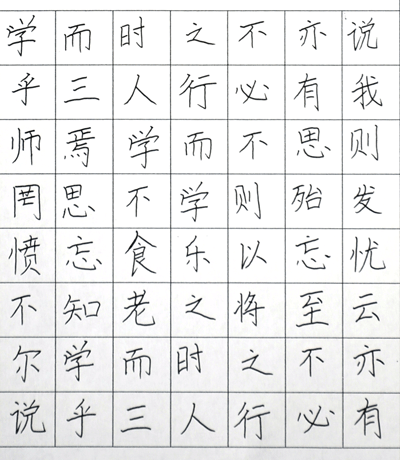 学而时之不亦说
乎三人行必有我
师焉学而不思则
罔思不学则殆发
愤忘食乐以忘忧
不知老之将至云
尔学而时之不亦
说乎三人行必有